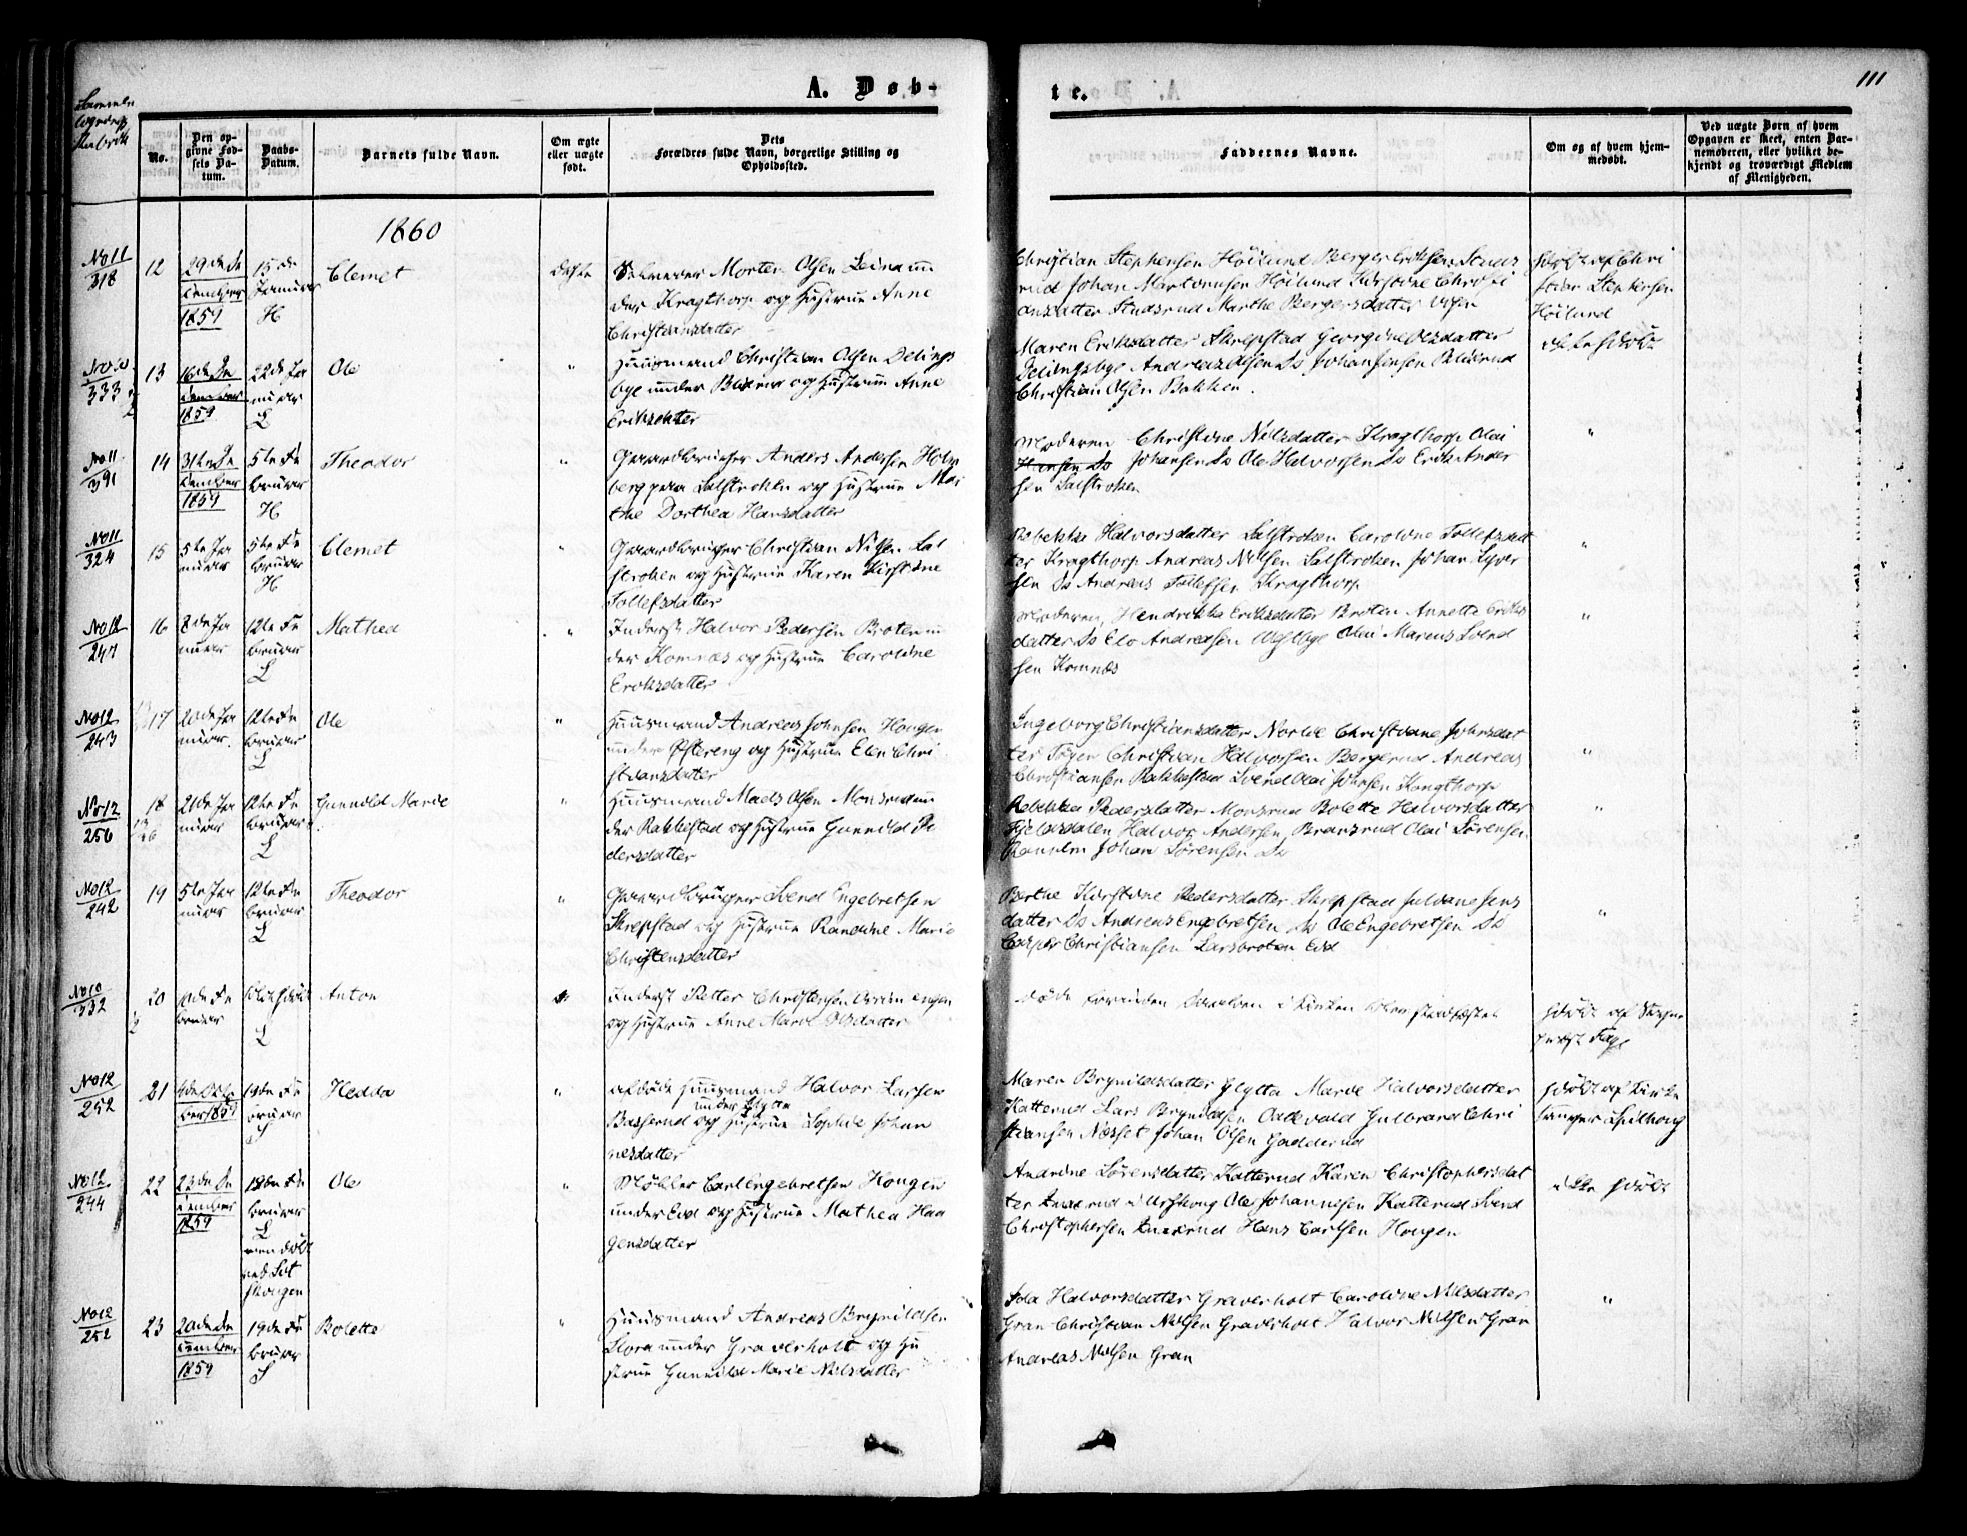 A. Døb-
te.
111
No.
Den op-
givne Fød-
sels Da-
tum.
Daabs-
Datum.
Barnets fulde Navn.
Om ægte
eller uægte
født.
Dets
Forældres fulde Navn, borgerlige Stilling og
Opholdssted.
Faddernes Navne.
Om og af hvem hjem-
medøbt.
Ved uægte Børn af hvem
Opgaven er skeet, enten Bar-
nemoderen, eller hvilket be-
kjendt og troværdigt Medlem
af Menigheden.
1860
No 11
318
12
29de De
cember
1859
15de
Januar
H
Clemet
Ægte
Selveier Morten Olsen Leina un
der Kragthorp og Hustrue Anne
Christiansdatter
Christian Stephensen Høilund Berger Eriksen Studs
rud Johan Martinusen Høilund Kirstine Christi
ansdatter Studsrud Marthe Bergersdatter
hjdøbt af Chri
stian Stephensen
Høilund
333
13
16de De
cember
1859
22de Ja
nuar
L
Ole
"
Huusmand Christian Olsen Delings
bye under og Hustrue Anne
Eriksdatter
Maren Eriksdatter Skrepstad Georgine Olsdatter
Delingsbye Andreas Olsen Do Johan Jensen
Christian Olsen Bakken.
ikke hjdøbt
No 11
391
14
31te De
cember
1859
5te Fe
bruar
H
Theodor
"
Gaardbruger Anders Andersen Holm
berg paa Salstroken og Hustrue Mar
the Dorthea Hansdatter
Moderen Christine Nilsdatter Kragthorp Olai
Hansen Do Johansen Do Ole Halvorsen Do Erik Ander
sen Salstroken
"
No 11
324
15
5te Ja
nuar
5te Fe
bruar
H
Clemet
"
Gaardbruger Christian Nilsen Sal
stroken og Hustrue Karen Kirstine
Tollefsdatter
Rebekka Halvorsdatter Salstroken Caroline Tollefsdat
ter Kragthorp Andreas Nilsen Salstroken Johan Iver
sen Do Andreas Tollefsen Kragthorp
"
No 12
247
16
8de Ja
nuar
12te Fe
bruar
L
Mathea
"
Inderst Halvor Pedersen Braten un
der Komnæs og Hustrue Caroline
Eriksdatter
Moderen, Hendrikka Eriksdatter Braten Annette Eriks
datter Do Andreasen Olai Marius Svend
sen Komnæs
"
No 12
243
17
20de Ja
nuar
12te Fe
bruar
L
Ole
"
Huusmand Andreas Johnsen Hougen
under Østereng og Hustrue Elen Chri
stiansdatter
Ingeborg Christiansdatter Christiane Johnsdat
ter Christian Halvorsen Bergerud Andreas
Christiansen Rakkestad Svend Olai Johnsen Kragthorp
"
No 12
256
18
21de Ja
nuar
12te Fe
bruar
L
Gunnild Marie
"
Huusmand Mads Olsen Monsrud un
der Rakkestad og Hustrue Gunnild Pe
dersdatter
Rebekka Pedersdatter Monsrud Bolette Halvorsdatter
Fjeldsdalen Halvor Andersen Bransrud Olai Sørensen
Johan Sørensen Do
"
No 12
242
19
5te Ja
nuar
12te Fe
bruar
L
Theodor
"
Gaardbruger Svend Engebretsen
Skrepstad og Hustrue Randine Marie
Christensdatter
Berthe Kirstine Pedersdatter Skrepstad Juliane Jens
datter Do Andreas Engebretsen Do Ole Engebretsen Do
Casper Christiansen Larsbraten Eid
"
No 10
332
20
10de Fe
bruar
L
Anton
"
Inderst Petter Christensen
og Hustrue Anne Marie Olsdatter
døde forinden Daaben i Kirken blev stadfæstet
hjdøbt af Sogne
præst Faye
No 12
252
21
ber 1859
19de Fe
bruar
S
Hedda
"
afdøde Huusmand Halvor Larsen
under Glytta
Basserud og Hustrue Sophie Johan
nesdatter
Maren Brynildsdatter Glytta Marie Halvorsdatter
Katterud Lars Brynildsen Oudevald Gulbrand Chri
stiansen Næsset Johan Olsen Gadderud
hjdøbt af Kirke
sanger Spilhoug
No 12
244
22
23de De
cember
1859
18de Fe
bruar
L
Ole
"
Møller Carl Engebretsen Hougen
under Eid og Hustrue Mathea Haa
gensdatter
Andrine Sørensdatter Katterud Karen Christophersdat
ter i Urskoug Ole Johannesen Katterud Svend
Christophersen Hans Carlsen Hougen
ikke hjdøbt
No 12
252
23
20de De
cember
1859
19de Fe
bruar
S
Bolette
"
Huusmand Andreas Brynildsen
Slora under Graverholt og Hu
strue Gunnild Marie Nilsdatter
Ida Halvorsdatter Graverholt Caroline Nilsdatter
Gran Christian Nilsen Graverholt Halvor Nilsen Gran
Andreas Nilsen Gran
"